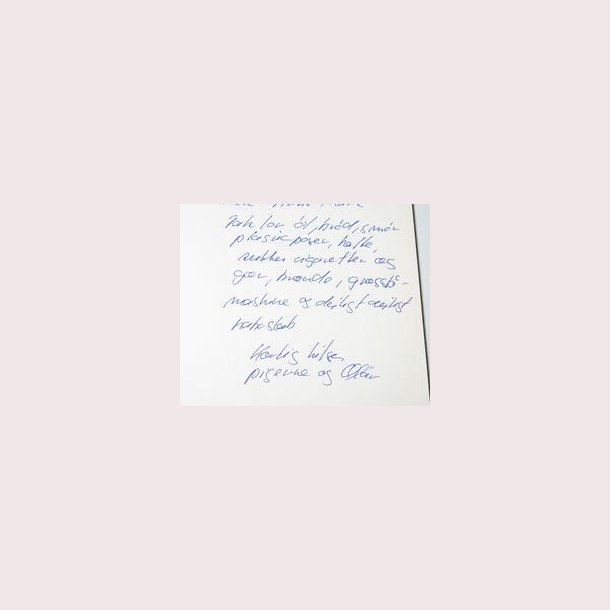 Tak for öl, bröd, smör
plasticposer, kaffe,
sukker cigaretter og
gær, brænde, græsslå-
maskine og dejligt dejligt
Kærlig hilsen
pigerne og